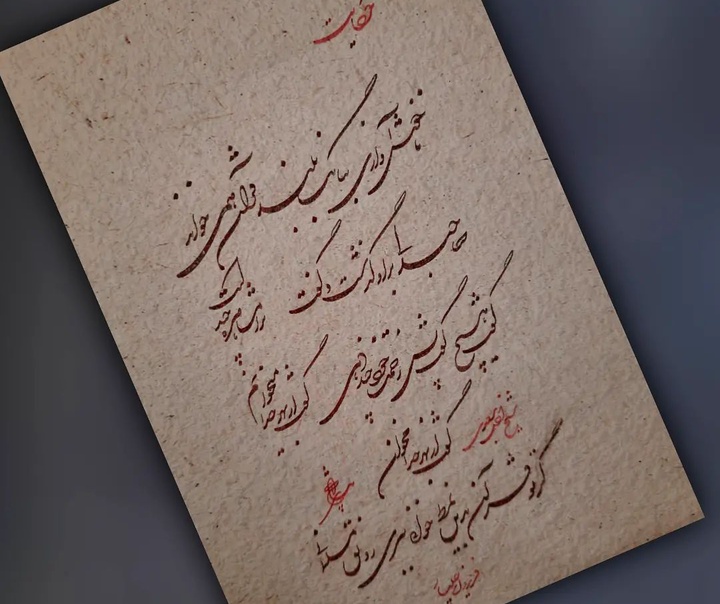 حکایت
ناخوش آوازی ببانگ بلند قرآن همی خواند
صاحبدلی برو گذشت و گفت ترا مشاهره چند است
گفت هیچ گفت پس زحمت خود چندین همی دهی گفت از بهر خدا میخوانم
گفت از بهر خدا مخوان
شیخ اجل سعدی
گر تو قرآن بدین نمط خوانی ببری رونق مسلمانی